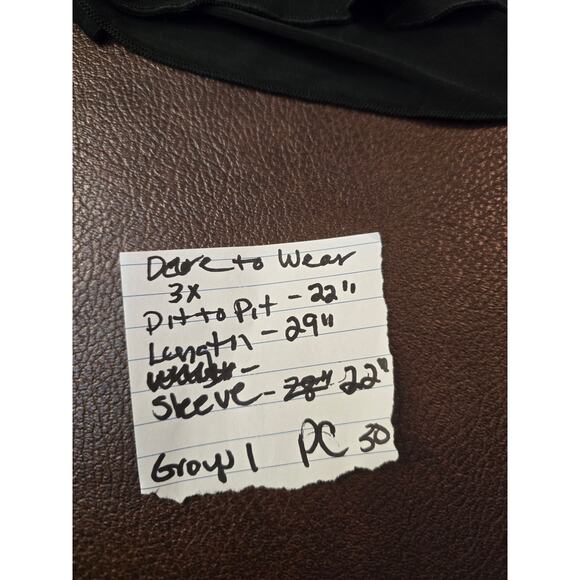 Dare to Wear
3X
Pit to Pit - 22"
Length - 29"
Sleeve - 28" 22"
Group 1 PC 30